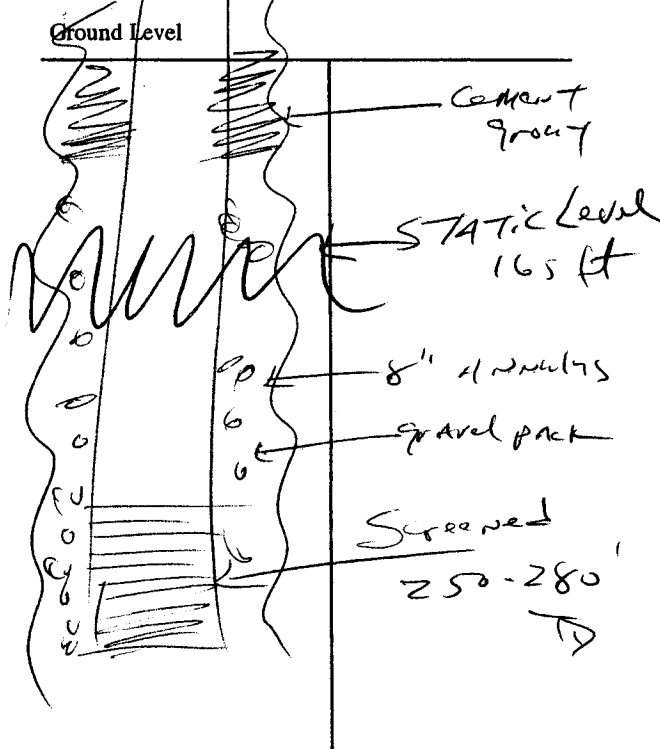 Ground Level
Cement
grout
STATiC Level
165 ft
8" ANNulus
gravel pack
Screened
250-280'
TD